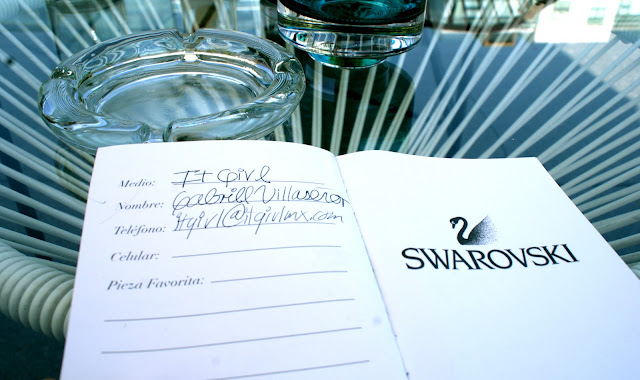 Medio: It Girl
Nombre: Gabriell Villasenor
Teléfono: itgirl@itgirlmx.com
Celular:
Pieza Favorita:
SWAROVSKI